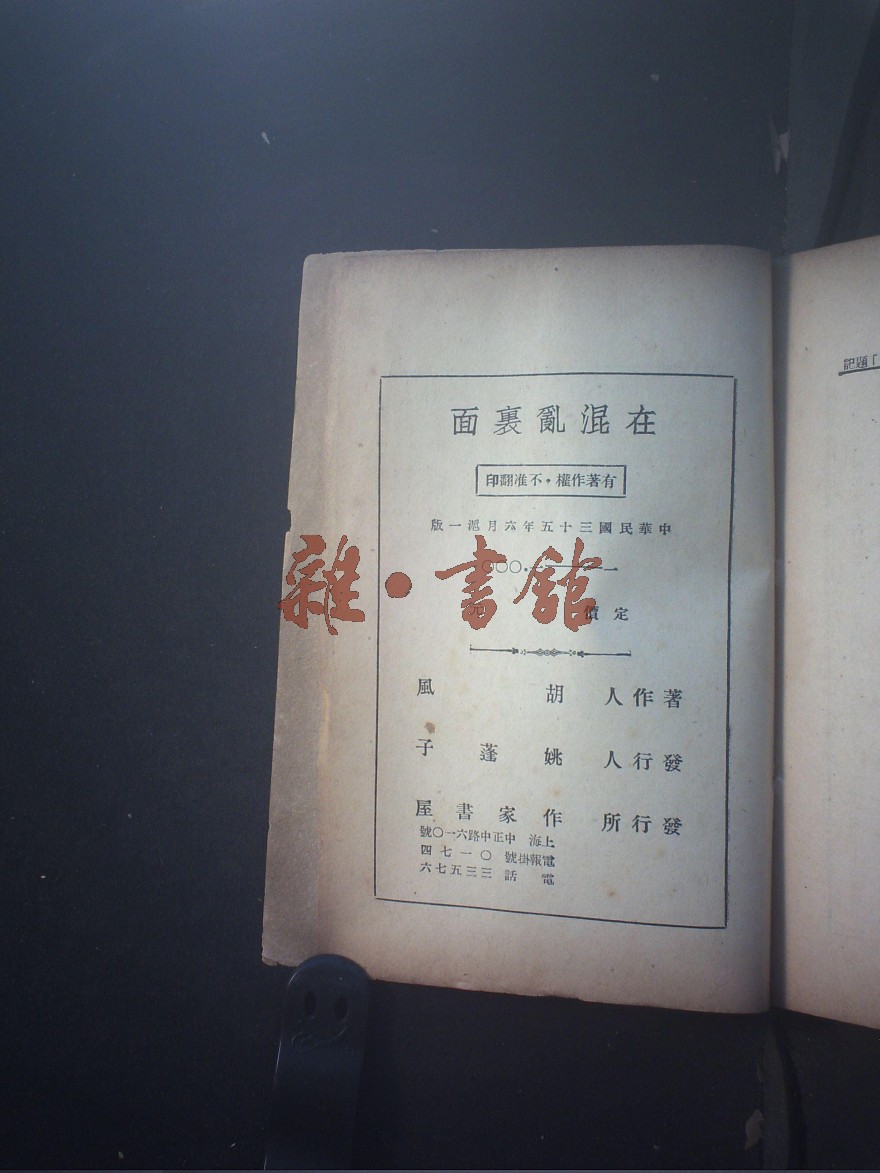 在混亂裏面
有著作權・不准翻印
中華民國三十五年六月滬一版
定價
著作人 胡風
發行人 姚蓬子
發行所 作家書屋
上海中正中路六一〇號
電報掛號 〇一七四
電話 三三五七六
題記
雜・書館